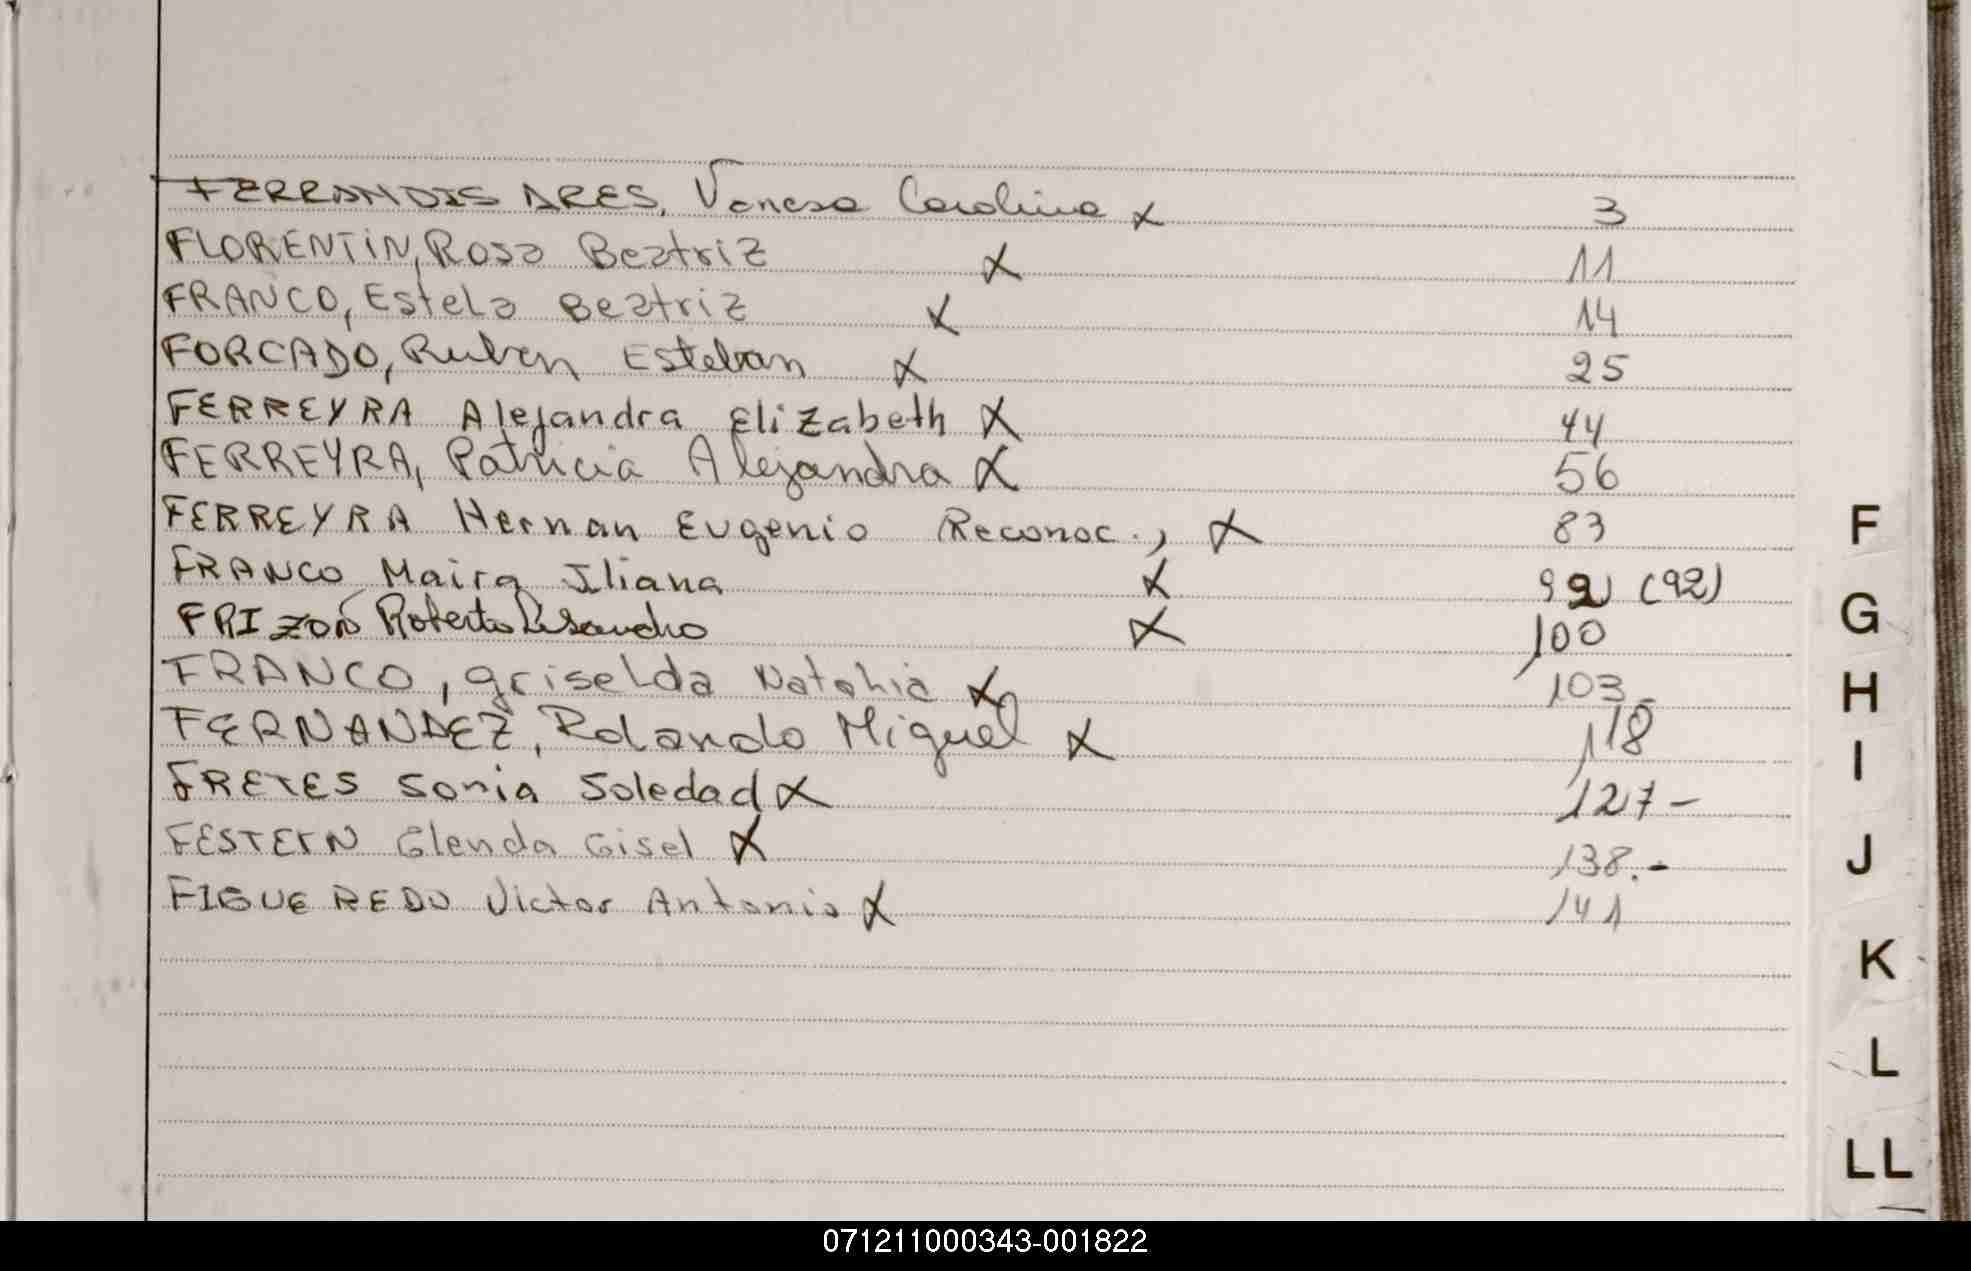 FERRANDIS ARES, Vanesa Carolina x 3
FLORENTIN, Rosa Beatriz x 11
FRANCO, Estela Beatriz x 14
FORCADO, Ruben Esteban x 25
FERREYRA Alejandra Elizabeth x 44
FERREYRA, Patricia Alejandra x 56
FERREYRA Hernan Eugenio Reconoc., x 83
FRANCO Maira Iliana x 92 (92)
FRIZON Roberto Lisandro x 100
FRANCO, Griselda Natahia x 103
FERNANDEZ, Rolando Miguel x 118
FRETES Sonia Soledad x 127-
FESTEIN Glenda Gisel x 138.-
FIGUEREDO Victor Antonio x 141
F
G
H
I
J
K
L
LL
071211000343-001822